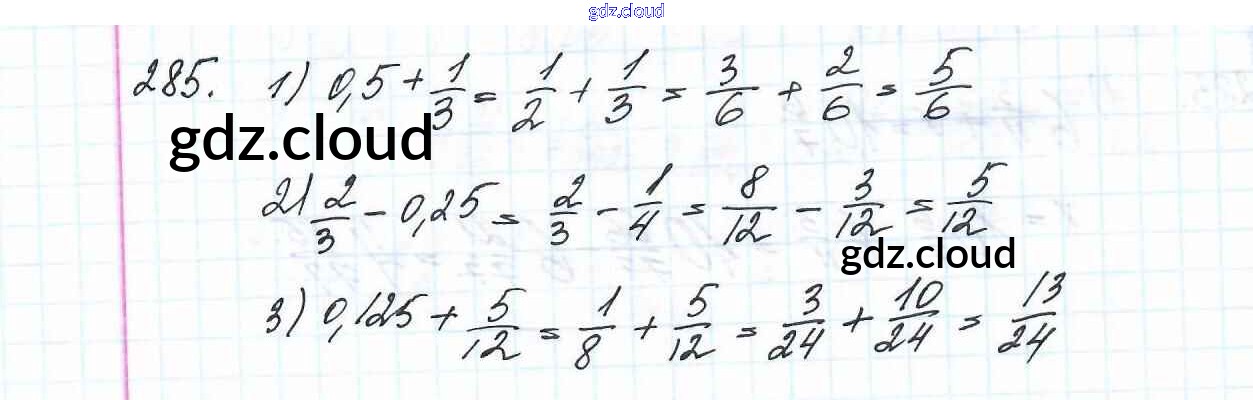 gdz.cloud
285. 1) 0,5 + 1/3 = 1/2 + 1/3 = 3/6 + 2/6 = 5/6
gdz.cloud
2) 2/3 - 0,25 = 2/3 - 1/4 = 8/12 - 3/12 = 5/12
gdz.cloud
3) 0,125 + 5/12 = 1/8 + 5/12 = 3/24 + 10/24 = 13/24